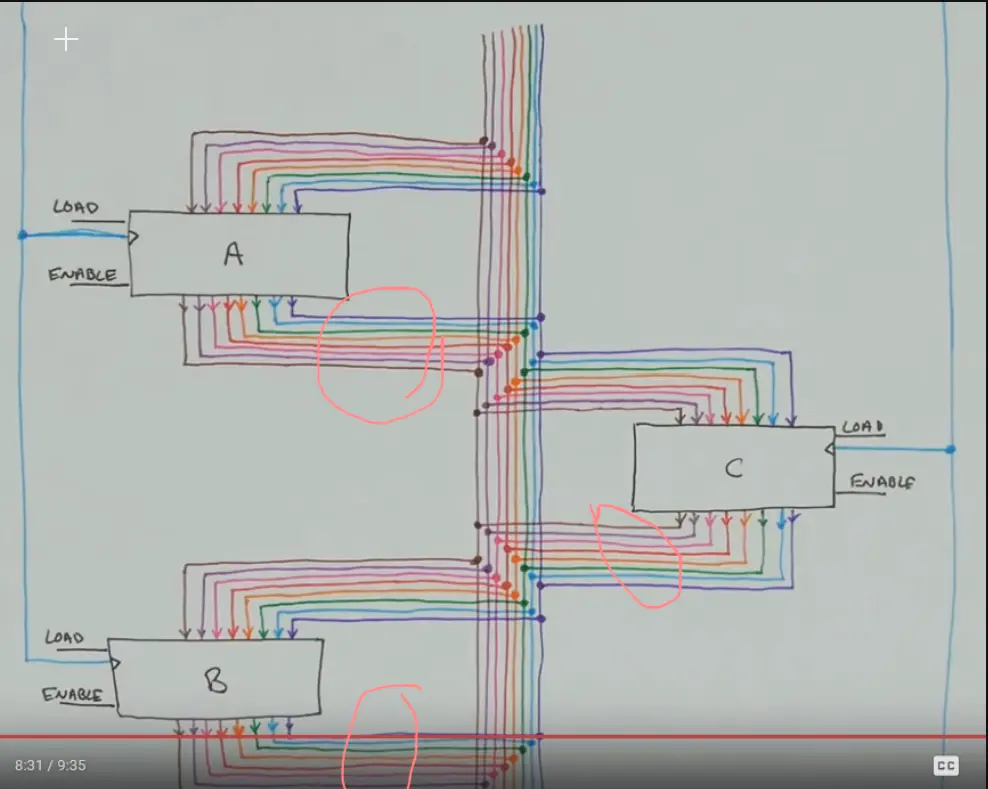 LOAD
A
ENABLE
LOAD
C
ENABLE
LOAD
B
ENABLE
8:31 / 9:35
CC